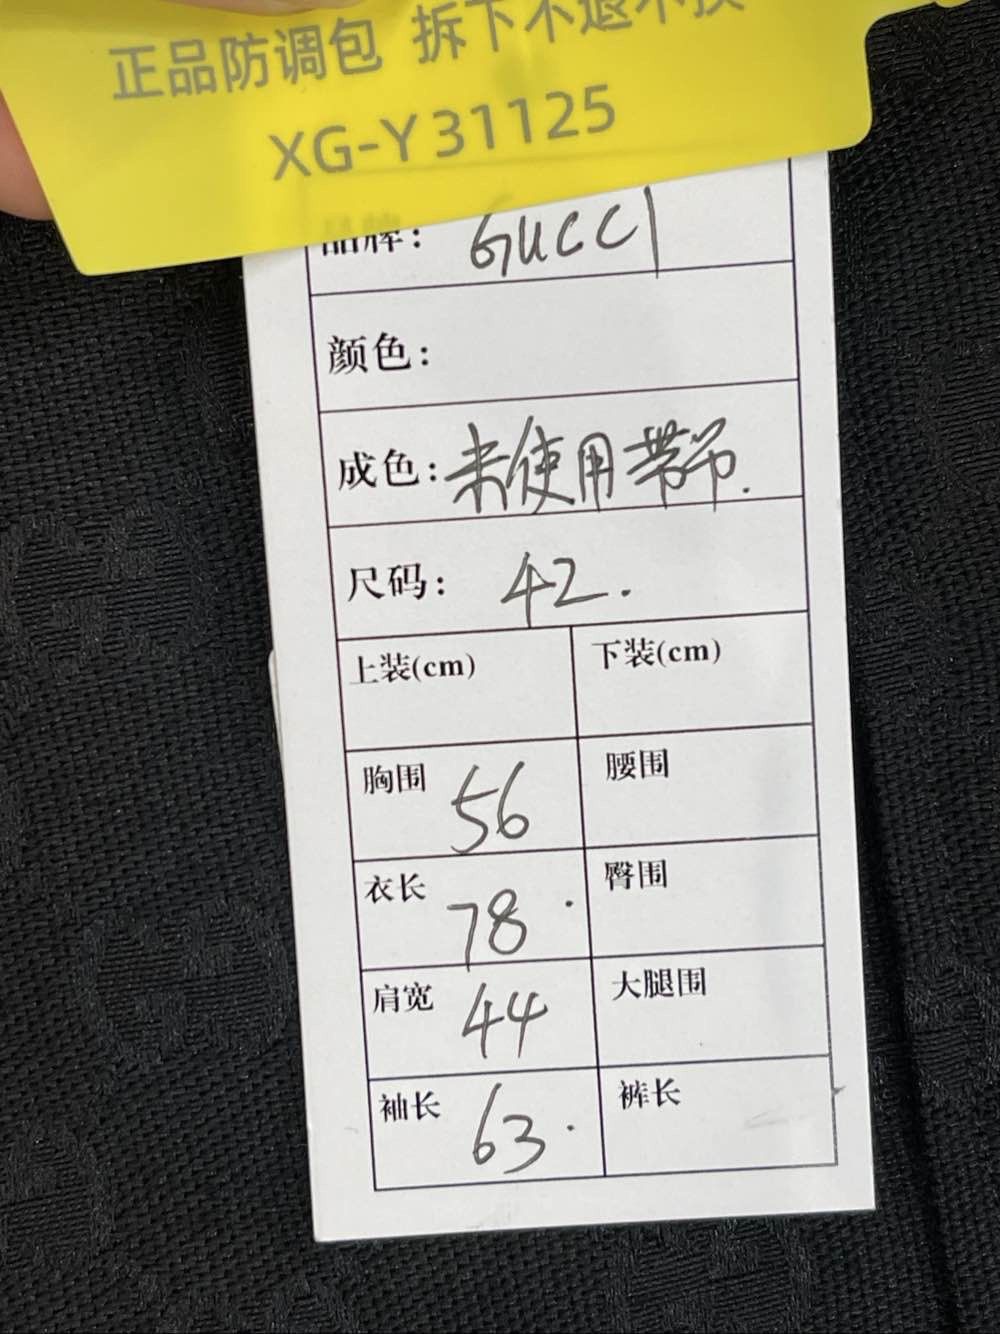 正品防调包 拆下不退不换
XG-Y31125
品牌: GUCCI
颜色:
成色: 未使用带吊.
尺码: 42.
上装(cm) 下装(cm)
胸围 56 腰围
衣长 78. 臀围
肩宽 44 大腿围
袖长 63. 裤长